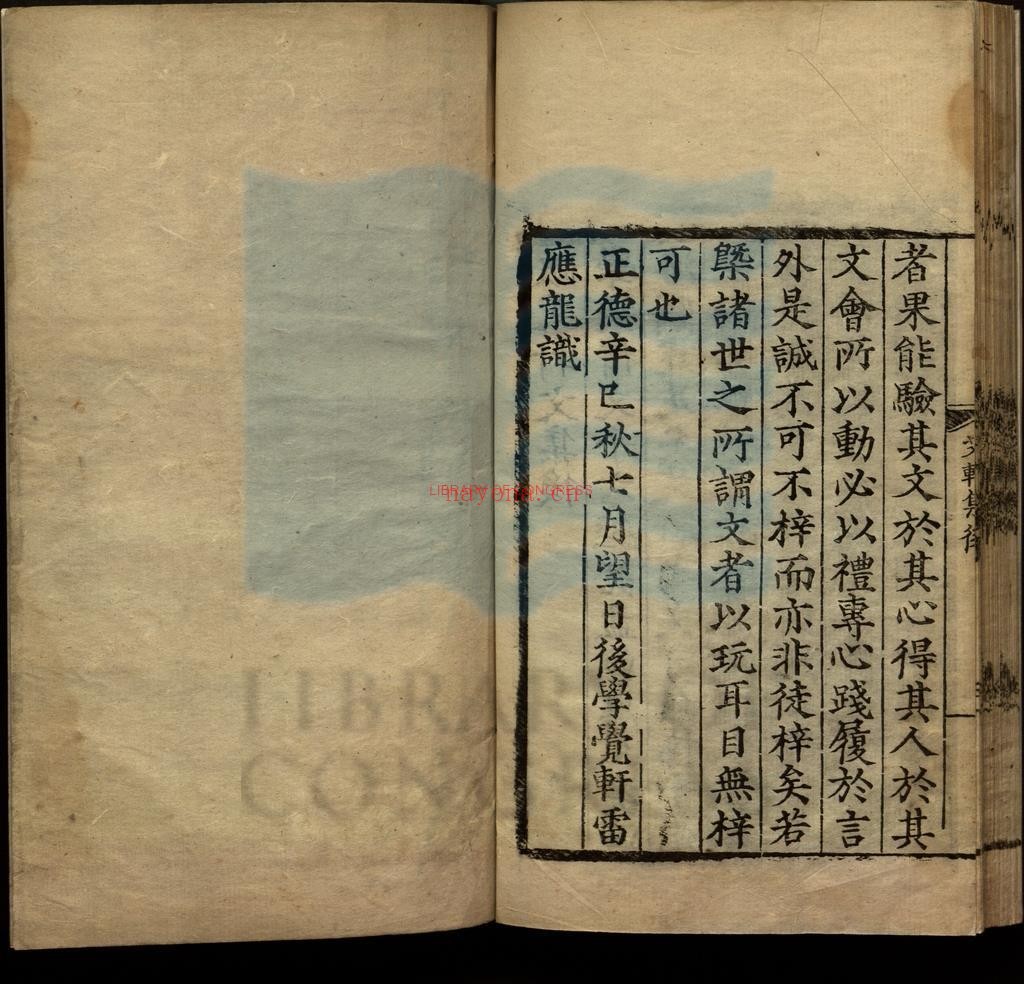 者果能驗其文於其心得其人於其
文會所以動必以禮專心踐履於言
外是誠不可不梓而亦非徒梓矣若
槩諸世之所謂文者以玩耳目無梓
可也
正德辛巳秋七月望日後學覺軒雷
應龍識
軒集後
LIBRARY OF CONGRESS